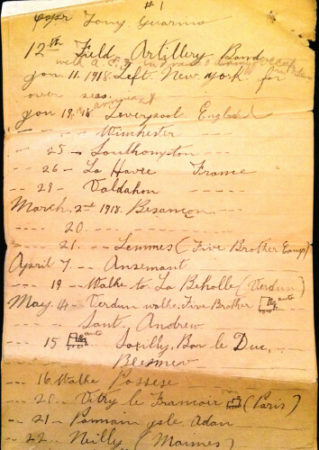 #1
Tony Guarino
12th Field Artillery Band
with a
Jan. 11. 1918. Left New York for
over seas.
Jan 19, 18 Liverpool England
-- -- Winchester
-- 25 -- Southhampton
-- 26 -- La Havre France
-- 28 -- Valdahon
March, 2nd 1918. Besancon
-- -- 20 -- --
-- -- 21. -- Lemmes (Five Brother Camp)
April 7 -- Ansemont
-- -- 19 -- Walke to La Beholle (Verdun)
May 14 -- Verdun walke Five Brother auto
Sant. Andrew
-- 15 auto Souilly, Bar le Duc,
-- 16. Walke Possese
-- 20 -- Vitry le Francoir (Paris)
-- 21 -- Isle Adan
-- 22 -- Neilly (Marnes)